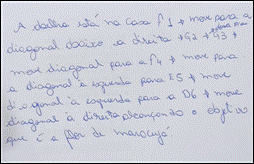 A abelha está na casa F1 * move para a
diagonal abaixo a direita * G2 * G3 *
move diagonal para a F4 * move para
a diagonal a esquerda para E5 * move
diagonal a esquerda para a D6 * move
diagonal a direita alcançando o objetivo
que é a flor de maracujá